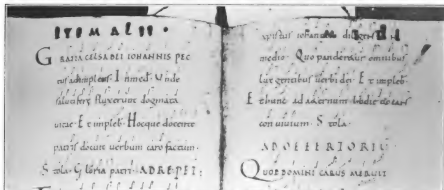 ITEM ALII
GRATIA CELSA DEI IOHANNIS PEC
tus adimplens. Inmed. Unde
salutifera fluxerunt dogmata
uitae Et impleb. Hocque docente
patris docuit uerbum caro factum.
Stola. Gloria patri. AD REPET:
apostus iohannes
medio. Quo panderetur omnibus
lux gentibus uerbi dei. Et impleb.
Et hunc ad aeternum
conuiuium. Stola.
AD OFFERTORIU
QUOD DOMINI CARUS MERUIT